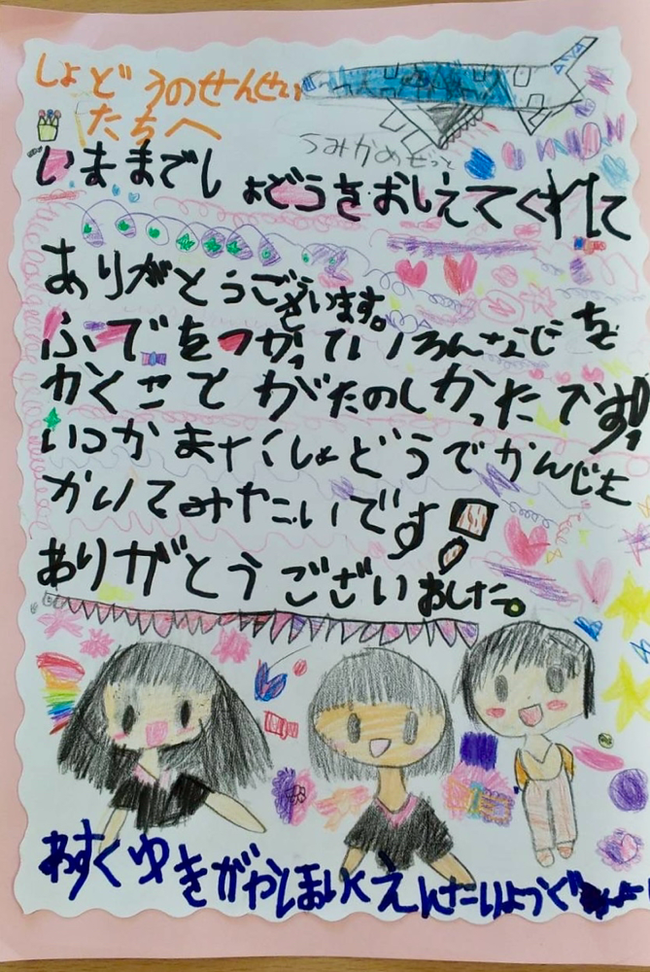 しょどうのせんせい
たちへ
うみかめぜっと
いままでしょどうをおしえてくれて
ありがとうございます。
ふでをつかっていろんなじを
かくことがたのしかったです!
いつかまたしょどうでかんじも
かいてみたいです!
ありがとうございました。
あすくゆきがやほいくえん